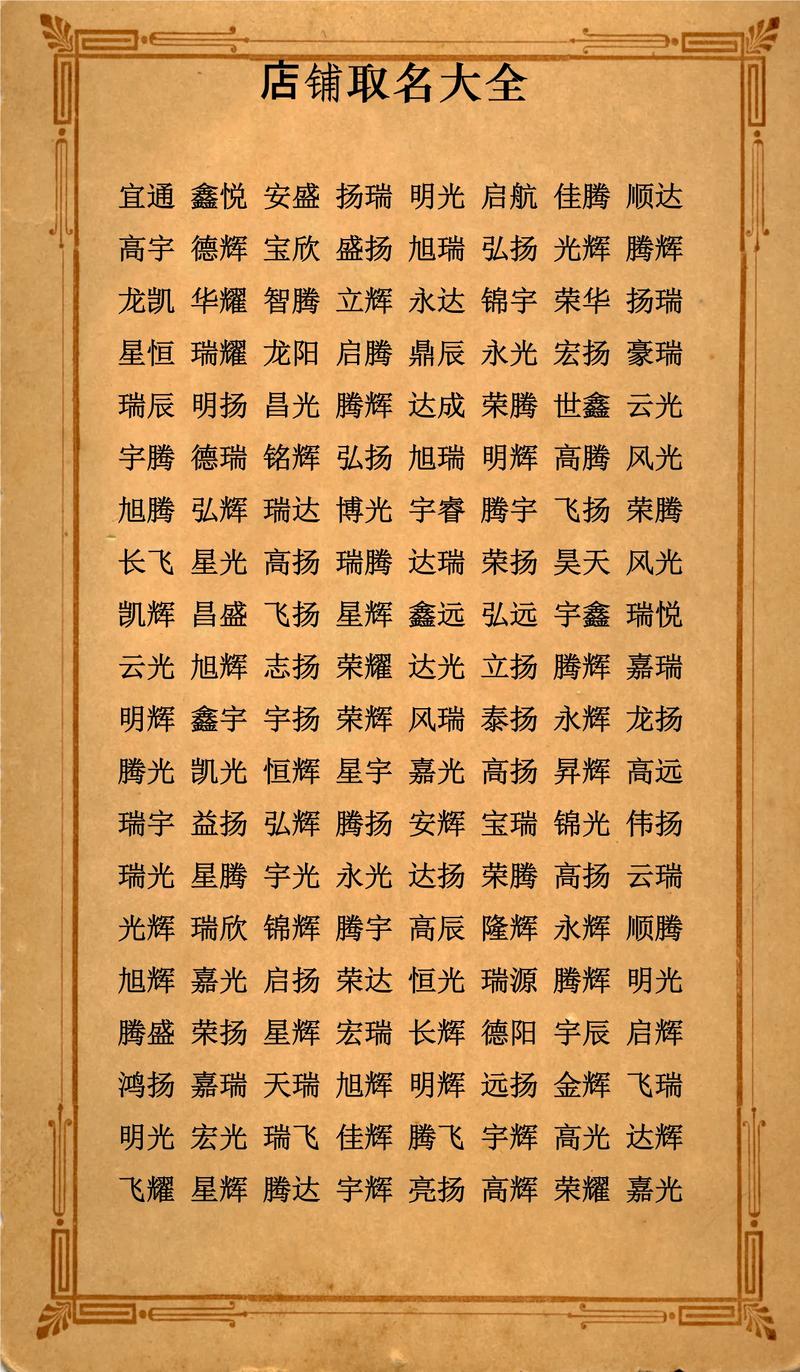 店铺取名大全
宜通 鑫悦 安盛 扬瑞 明光 启航 佳腾 顺达
高宇 德辉 宝欣 盛扬 旭瑞 弘扬 光辉 腾辉
龙凯 华耀 智腾 立辉 永达 锦宇 荣华 扬瑞
星恒 瑞耀 龙阳 启腾 鼎辰 永光 宏扬 豪瑞
瑞辰 明扬 昌光 腾辉 达成 荣腾 世鑫 云光
宇腾 德瑞 铭辉 弘扬 旭瑞 明辉 高腾 风光
旭腾 弘辉 瑞达 博光 宇睿 腾宇 飞扬 荣腾
长飞 星光 高扬 瑞腾 达瑞 荣扬 昊天 风光
凯辉 昌盛 飞扬 星辉 鑫远 弘远 宇鑫 瑞悦
云光 旭辉 志扬 荣耀 达光 立扬 腾辉 嘉瑞
明辉 鑫宇 宇扬 荣辉 风瑞 泰扬 永辉 龙扬
腾光 凯光 恒辉 星宇 嘉光 高扬 昇辉 高远
瑞宇 益扬 弘辉 腾扬 安辉 宝瑞 锦光 伟扬
瑞光 星腾 宇光 永光 达扬 荣腾 高扬 云瑞
光辉 瑞欣 锦辉 腾宇 高辰 隆辉 永辉 顺腾
旭辉 嘉光 启扬 荣达 恒光 瑞源 腾辉 明光
腾盛 荣扬 星辉 宏瑞 长辉 德阳 宇辰 启辉
鸿扬 嘉瑞 天瑞 旭辉 明辉 远扬 金辉 飞瑞
明光 宏光 瑞飞 佳辉 腾飞 宇辉 高光 达辉
飞耀 星辉 腾达 宇辉 亮扬 高辉 荣耀 嘉光